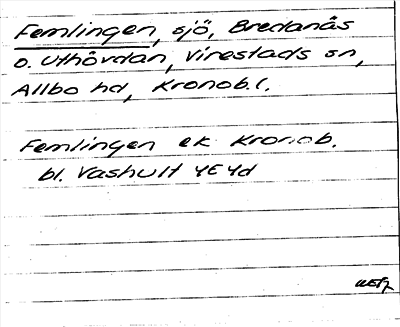 Femlingen, sjö, Bredanäs
o. Uthövdan, Virestads sn,
Allbo hd, Kronob.l.
Femlingen ek Kronob.
bl. Vashult 4E4d